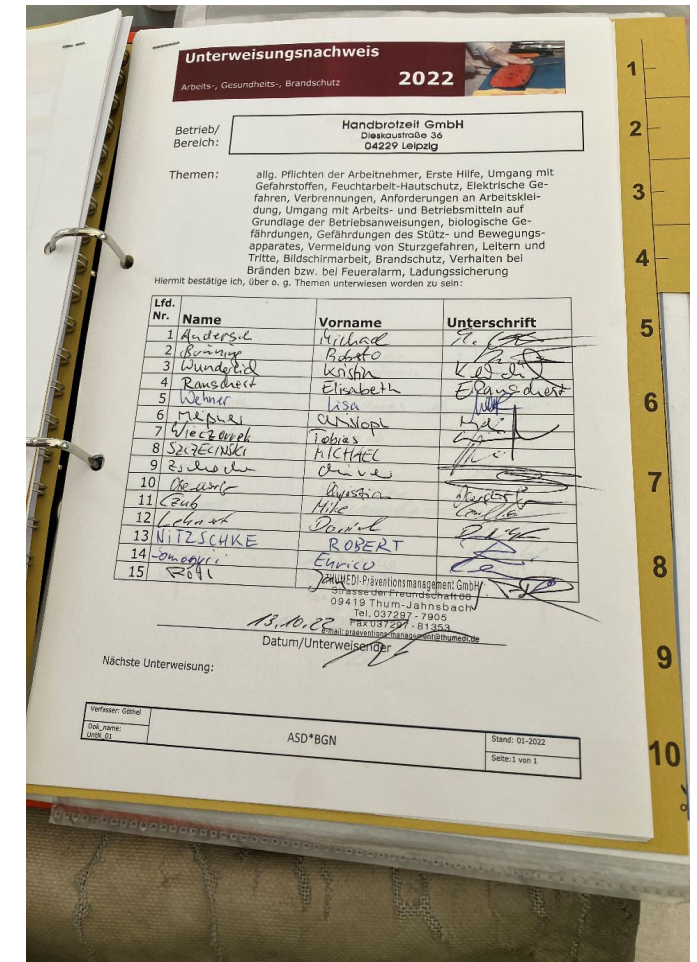 Unterweisungsnachweis
Arbeits-, Gesundheits-, Brandschutz 2022
Betrieb/
Bereich:
Handbrotzeit GmbH
Dieskaustraße 36
04229 Leipzig
Themen:
allg. Pflichten der Arbeitnehmer, Erste Hilfe, Umgang mit
Gefahrstoffen, Feuchtarbeit-Hautschutz, Elektrische Ge-
fahren, Verbrennungen, Anforderungen an Arbeitsklei-
dung, Umgang mit Arbeits- und Betriebsmitteln auf
Grundlage der Betriebsanweisungen, biologische Ge-
fährdungen, Gefährdungen des Stütz- und Bewegungs-
apparates, Vermeidung von Sturzgefahren, Leitern und
Tritte, Bildschirmarbeit, Brandschutz, Verhalten bei
Bränden bzw. bei Feueralarm, Ladungssicherung
Hiermit bestätige ich, über o. g. Themen unterwiesen worden zu sein:
Lfd.
Nr. Name Vorname Unterschrift
1 Michael
2
3 Wunderlich Kristin
4 Rauschert Elisabeth E.Rauschert
5 Wehner Lisa
6
7 Wieczorrek Tobias
8 SZCZECINSKI MICHAEL
9
10
11 Czub Mike
12 Daniel
13 NITZSCHKE ROBERT
14 Enrico
15
THUMEDI-Präventionsmanagement GmbH
Strasse der Freundschaft
09419 Thum-Jahnsbach
Tel. 037297 - 7905
Fax 037297 - 81353
e-mail: praeventionsmanagement@thumedi.de
13.10.22
Datum/Unterweisender
Nächste Unterweisung:
Verfasser: Göthel
Dok_name:
UntN_01
ASD*BGN
Stand: 01-2022
Seite:1 von 1
1
2
3
4
5
6
7
8
9
10